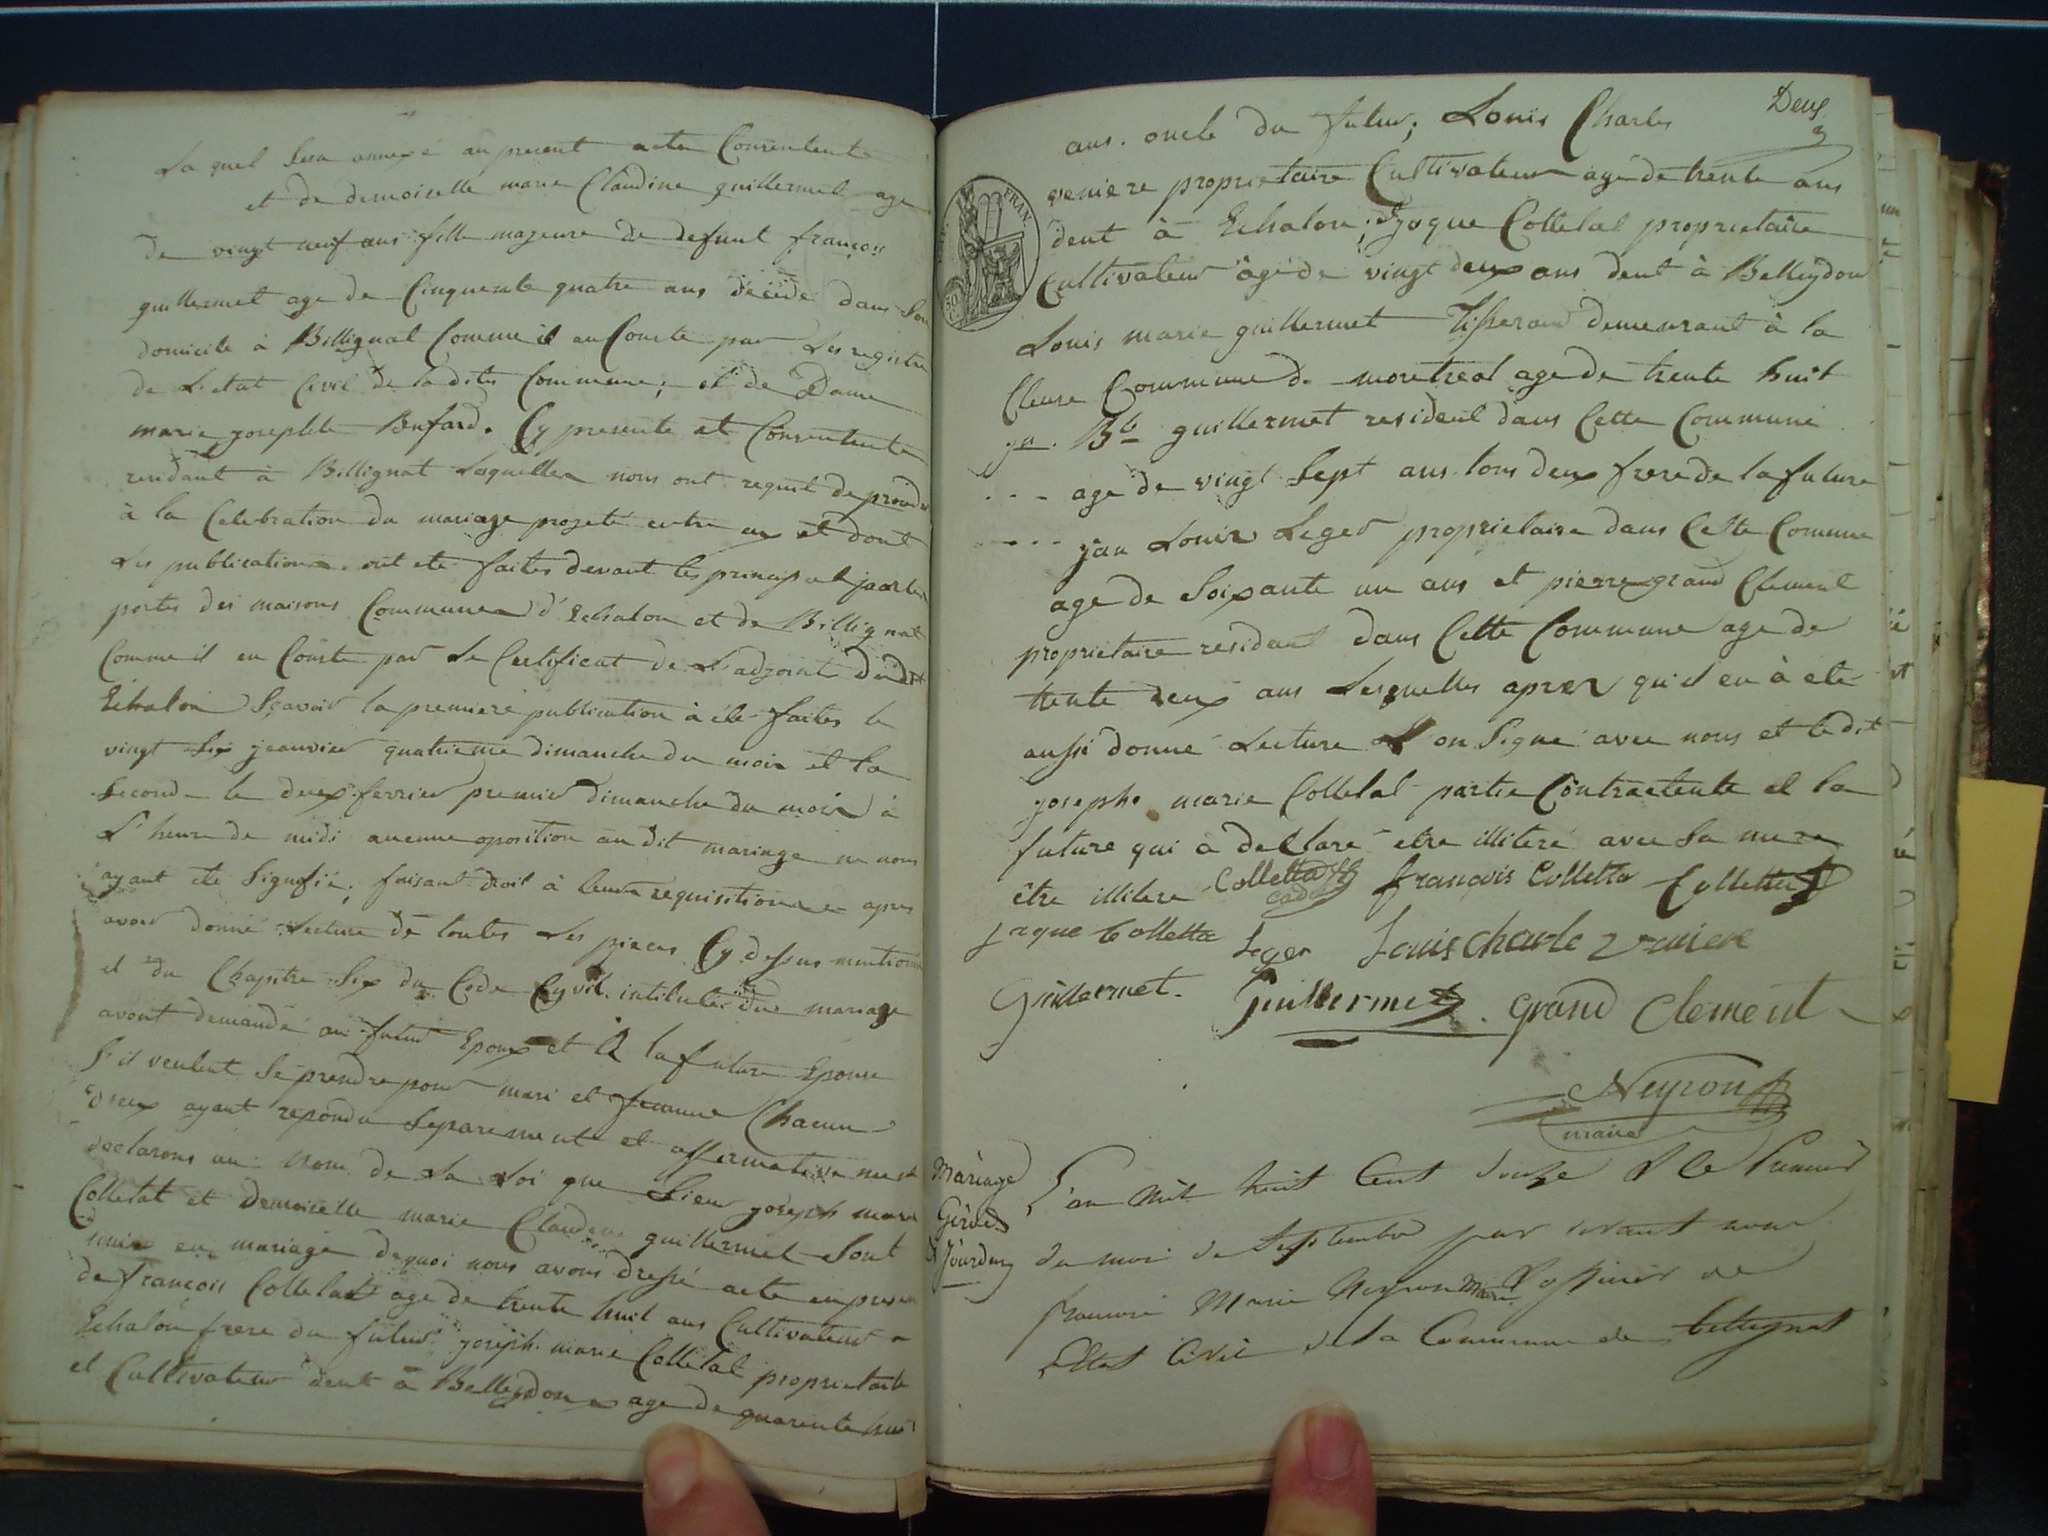 La quel sera annexé au present acte Consentent
et de demoiselle marie Claudine guillermet age
de vingt neuf ans fille majeure de defunt françois
guillermet age de Cinquente quatre ans décédé dans Son
domicile à Billignat Comme il en Conste par Les registre
de L'etat Civil de la dite Commune ; et de Dame
marie josephte Bufard. Cy presente et Consentente
residant à Billignat Lesquelles nous ont requit de proceder
à la Celebration du mariage projeté entre eux et dont
Les publications ont eté faites devant les principal portes
portes des maisons Commune d'Echalon et de Billignat
Comme il en Conste par Le Certificat de L'adjoint dudit
Echalon Sçavoir la premiere publication à été faites le
vingt Six jeanvier quatrieme dimanche du mois et la
Second le deux ferrier premier dimanche du mois à
L'heure de midi aucune oposition au dit mariage ne nous
ayant eté Signifié ; faisant droit à leurs requisitions apres
avoir donné Lecture de toutes Les pieces Cy dessus mentionné
et du Chapitre Six du Code Cyvil intitulés du mariage
avont demandé au futur Epoux et A la future Epouse
S'il veulent Se prendre pour mari et femme Chacun
d'eux ayant repondu Separement et affermativement
declarons au Nom de La Loi que Sieur joseph marie
Colletat et Demoiselle marie Claudine guillermet Sont
unis en mariage dequoi nous avons dressé acte en presen
de françois Colletat age de trente huit ans Cultivateur a
Echalon frere du futur joseph marie Colletat proprietaire
et Cultivateur deut à Belleydoux age de quarente huit
Deux
ans. oncle du futur ; Louis Charles
veniere proprietaire Cultivateur agé de trente ans
FRAN.
50
deut à Echalon ; Jjaque Colletat proprietaire
Cultivateur agé de vingt deux ans deut à Belleydoux
Louis marie guillermet Tisserand demeurant à la
Cleuse Commune de montreal age de trente huit
Bte guillermet resident dans Cette Commune
age de vingt Sept ans tous deux frere de la future
jean Louis Leger proprietaire dans Cette Commune
age de Soixante un ans et pierre grand Clement
proprietaire residant dans Cette Commune age de
trente deux ans Lesquelles apres qu'il en à eté
aussi donné Lecture L'on Signé avec nous et ledit
joseph marie Colletat partie Contractente et la
future qui à declaré etre illiteré avec Sa mere
être illitere Colletta cadet françois Colletta Colletta
jaque Colletta Leger Louis charle veniere
Guillermet. Guillermet. Grand Clement
Neyron
maire
Mariage
Girod
& Jourdan
L'an mil huit Cent douze & le Premier
du mois de Septembre par devant nous
francois Marie Neyron Maire & officier de
L'Etat Civil de la Commune de bellignat